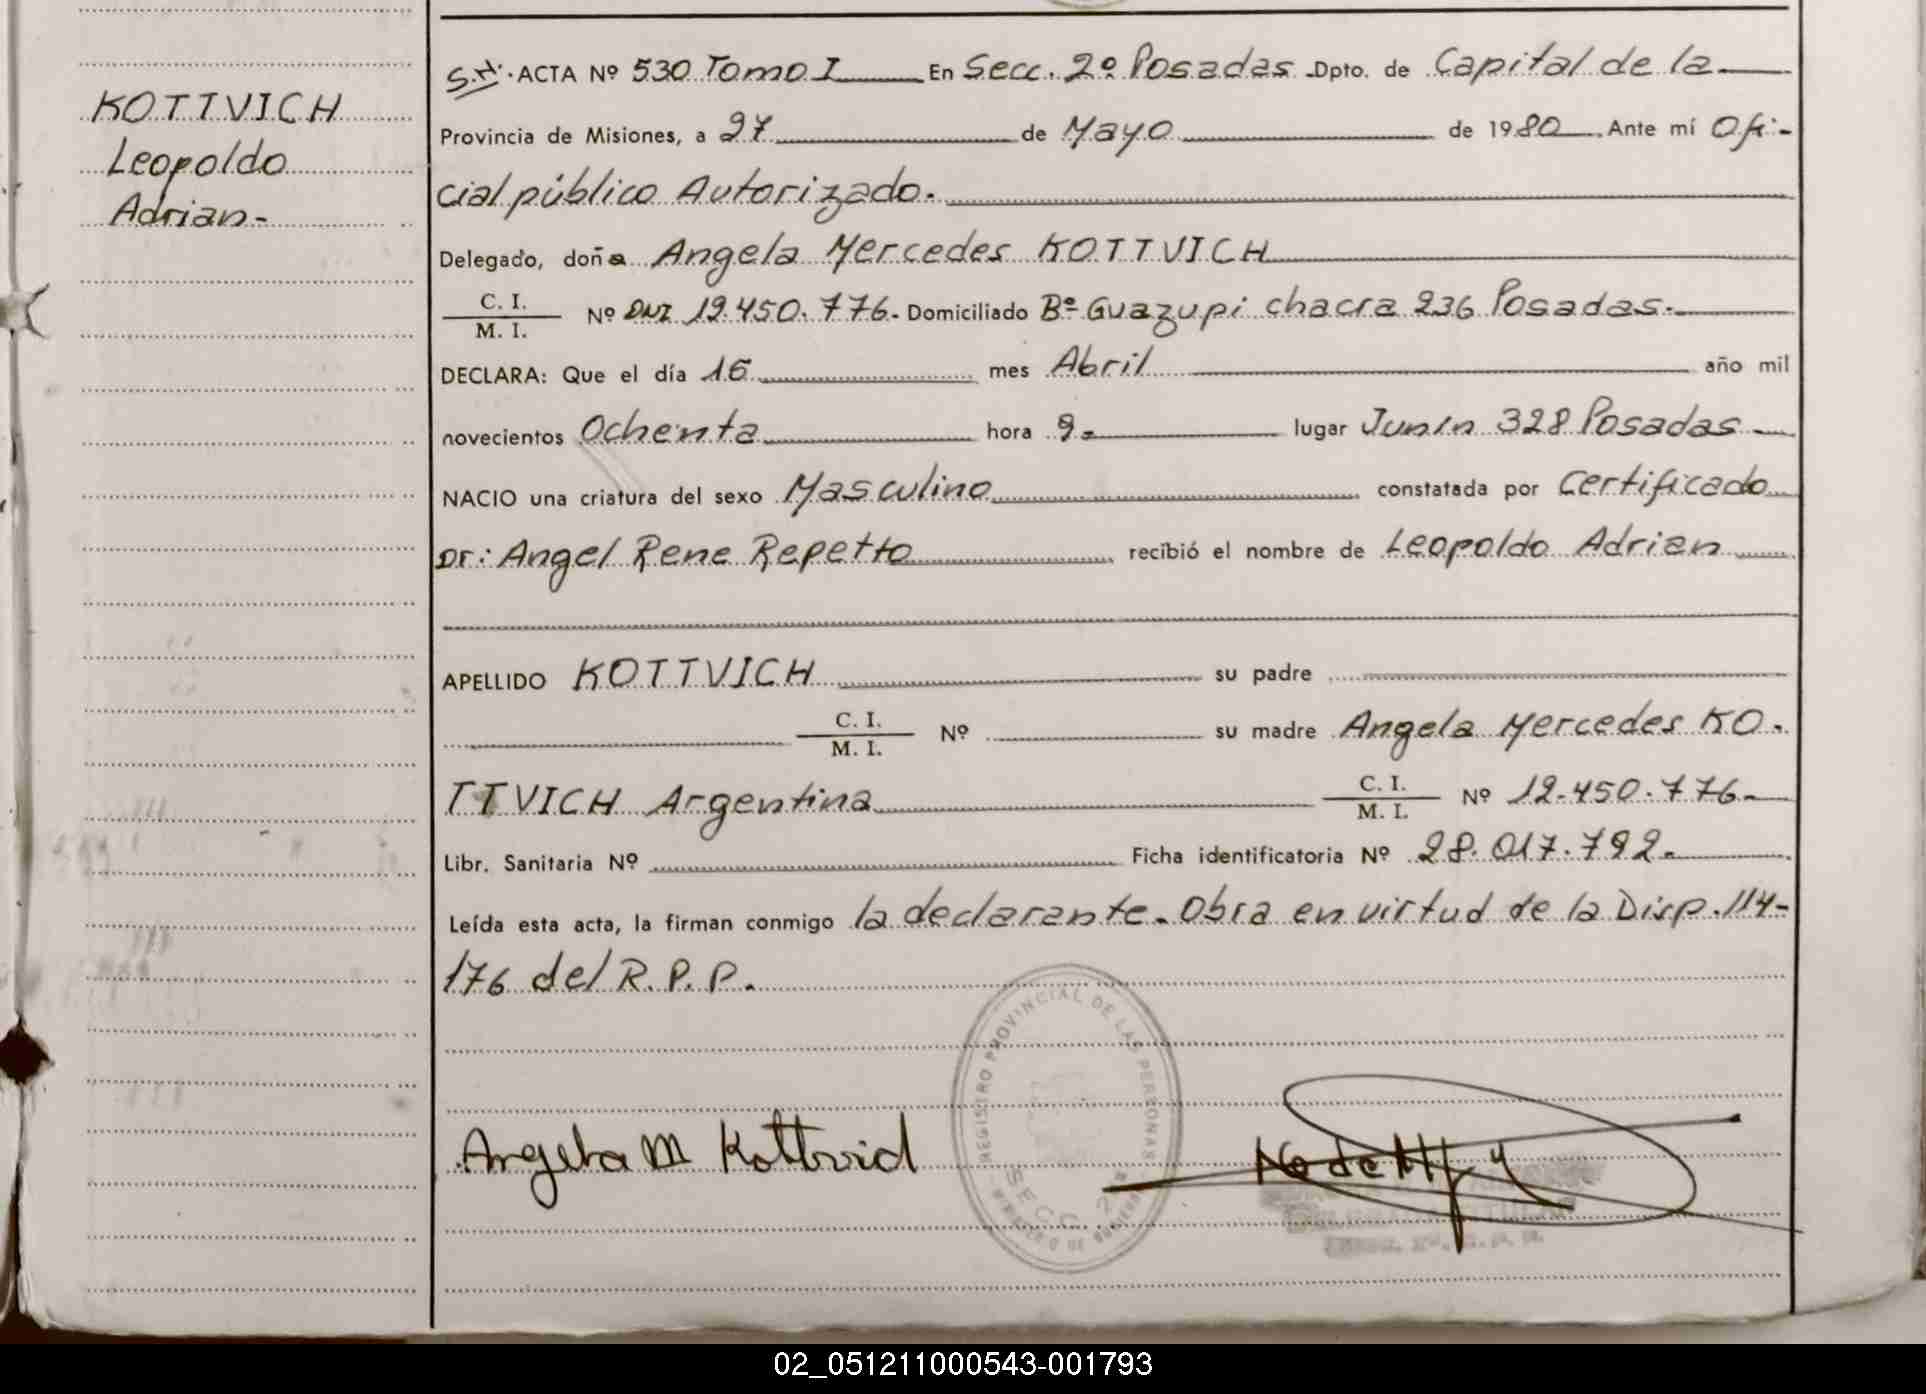 KOTTVICH
Leopoldo
Adrian-
S.H. ACTA Nº 530 Tomo I En Secc. 2º Posadas Dpto. de Capital de la
Provincia de Misiones, a 27 de Mayo de 1980 Ante mí Ofi-
cial público Autorizado.
Delegado, doña Angela Mercedes KOTTVICH
C. I.
M. I.
Nº DNI 12.450.776- Domiciliado Bº Guazupi chacra 236 Posadas.
DECLARA: Que el día 16 mes Abril año mil
novecientos Ochenta hora 9- lugar Junin 328 Posadas
NACIO una criatura del sexo Masculino constatada por Certificado
Dr: Angel Rene Repetto recibió el nombre de Leopoldo Adrian
APELLIDO KOTTVICH su padre
C. I.
M. I.
Nº su madre Angela Mercedes KO-
TTVICH Argentina C. I.
M. I.
Nº 12.450.776-
Libr. Sanitaria Nº Ficha identificatoria Nº 28.017.792-
Leída esta acta, la firman conmigo la declarante. Obra en virtud de la Disp. 114-
176 del R.P.P.
REGISTRO PROVINCIAL DE LAS PERSONAS
SECC. 2ª
Angela M Kottvich
02_051211000543-001793